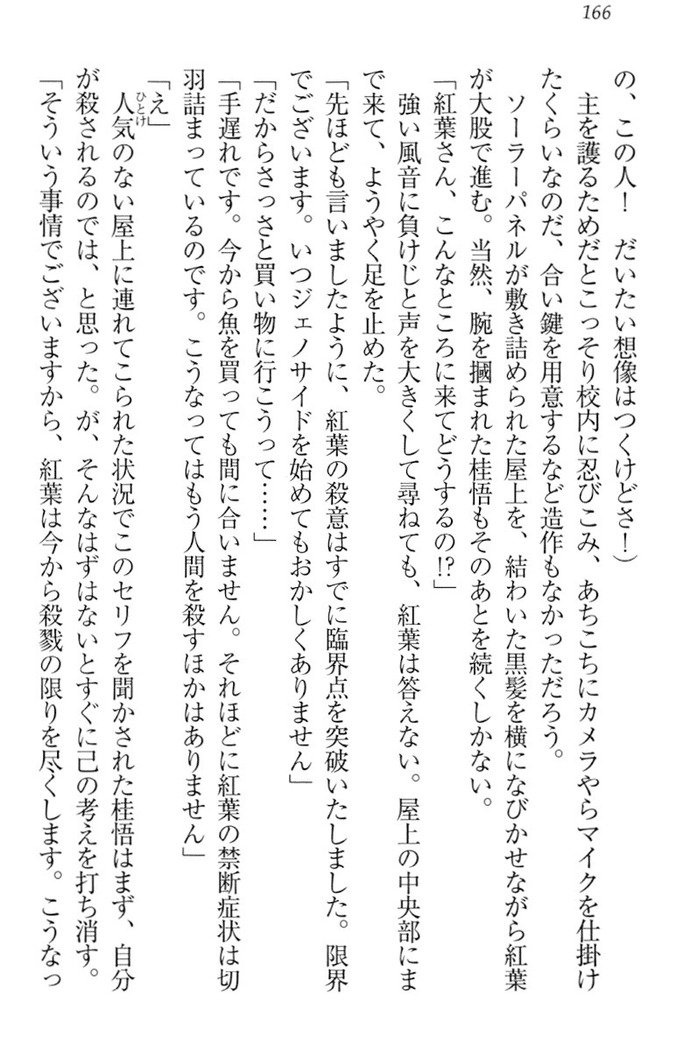 166
の、この人！　だいたい想像はつくけどさ！）
　主を護るためだとこっそり校内に忍びこみ、あちこちにカメラやらマイクを仕掛け
たくらいなのだ、合い鍵を用意するなど造作もなかっただろう。
　ソーラーパネルが敷き詰められた屋上を、結わいた黒髪を横になびかせながら紅葉
が大股で進む。当然、腕を摑まれた桂悟もそのあとを続くしかない。
「紅葉さん、こんなところに来てどうするの!?」
　強い風音に負けじと声を大きくして尋ねても、紅葉は答えない。屋上の中央部にま
で来て、ようやく足を止めた。
「先ほども言いましたように、紅葉の殺意はすでに臨界点を突破いたしました。限界
でございます。いつジェノサイドを始めてもおかしくありません」
「だからさっさと買い物に行こうって……」
「手遅れです。今から魚を買っても間に合いません。それほどに紅葉の禁断症状は切
羽詰まっているのです。こうなってはもう人間を殺すほかはありません」
「え」
　人気のない屋上に連れてこられた状況でこのセリフを聞かされた桂悟はまず、自分
ひとけ
が殺されるのでは、と思った。が、そんなはずはないとすぐに己の考えを打ち消す。
「そういう事情でございますから、紅葉は今から殺戮の限りを尽くします。こうなっ